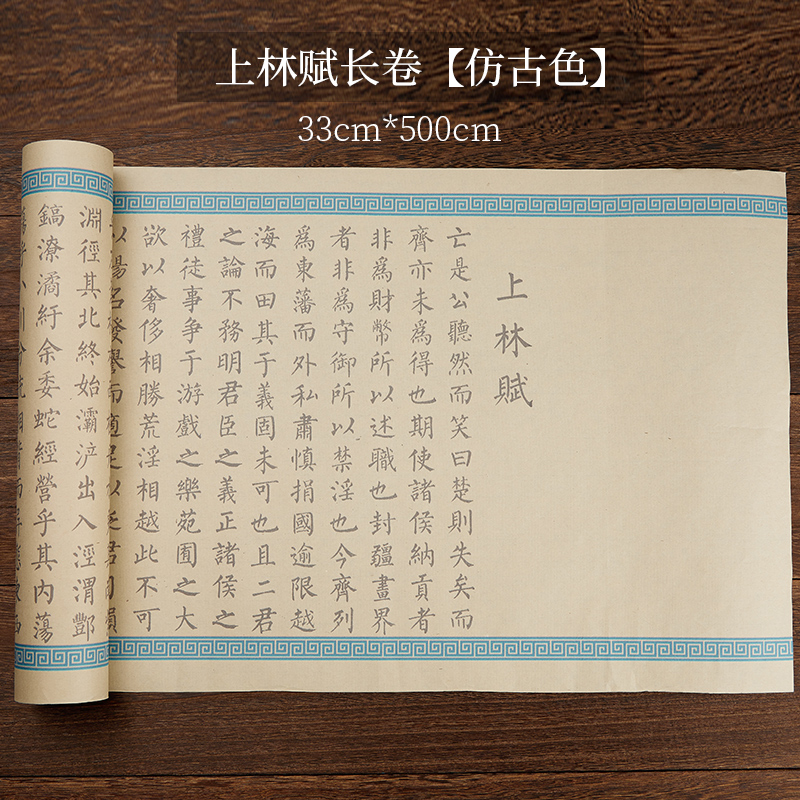 上林赋长卷【仿古色】
33cm*500cm
上林賦
亡是公聽然而笑曰楚則失矣而
齊亦未爲得也期使諸侯納貢者
非爲財幣所以述職也封疆畫界
者非爲守御所以禁淫也今齊列
爲東藩而外私肅慎捐國逾限越
海而田其于義固未可也且二君
之論不務明君臣之義正諸侯之
禮徒事争于游戲之樂苑囿之大
欲以奢侈相勝荒淫相越此不可
以揚名發譽而適足以
淵徑其北終始灞浐出入涇渭酆
鎬潦潏紆余委蛇經營乎其内蕩